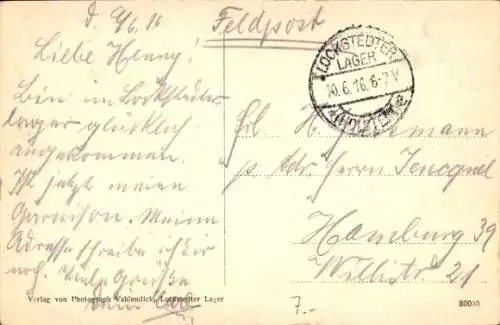 d. 9/6.16
Feldpost
Liebe Henny!
Bin im Lockstedter
lager glücklich
angekommen.
Ist jetzt meine
Garnison. Meine
Adresse schreibe ich dir
noch. Viele Grüße
LOCKSTEDTER
LAGER
10.6.16.6-7V
Frl. H.
p. Adr. Herrn Jencquel
Hamburg 39
Willistr. 21
Verlag von Photograph Vahlendick, Lockstedter Lager
80056
7.-